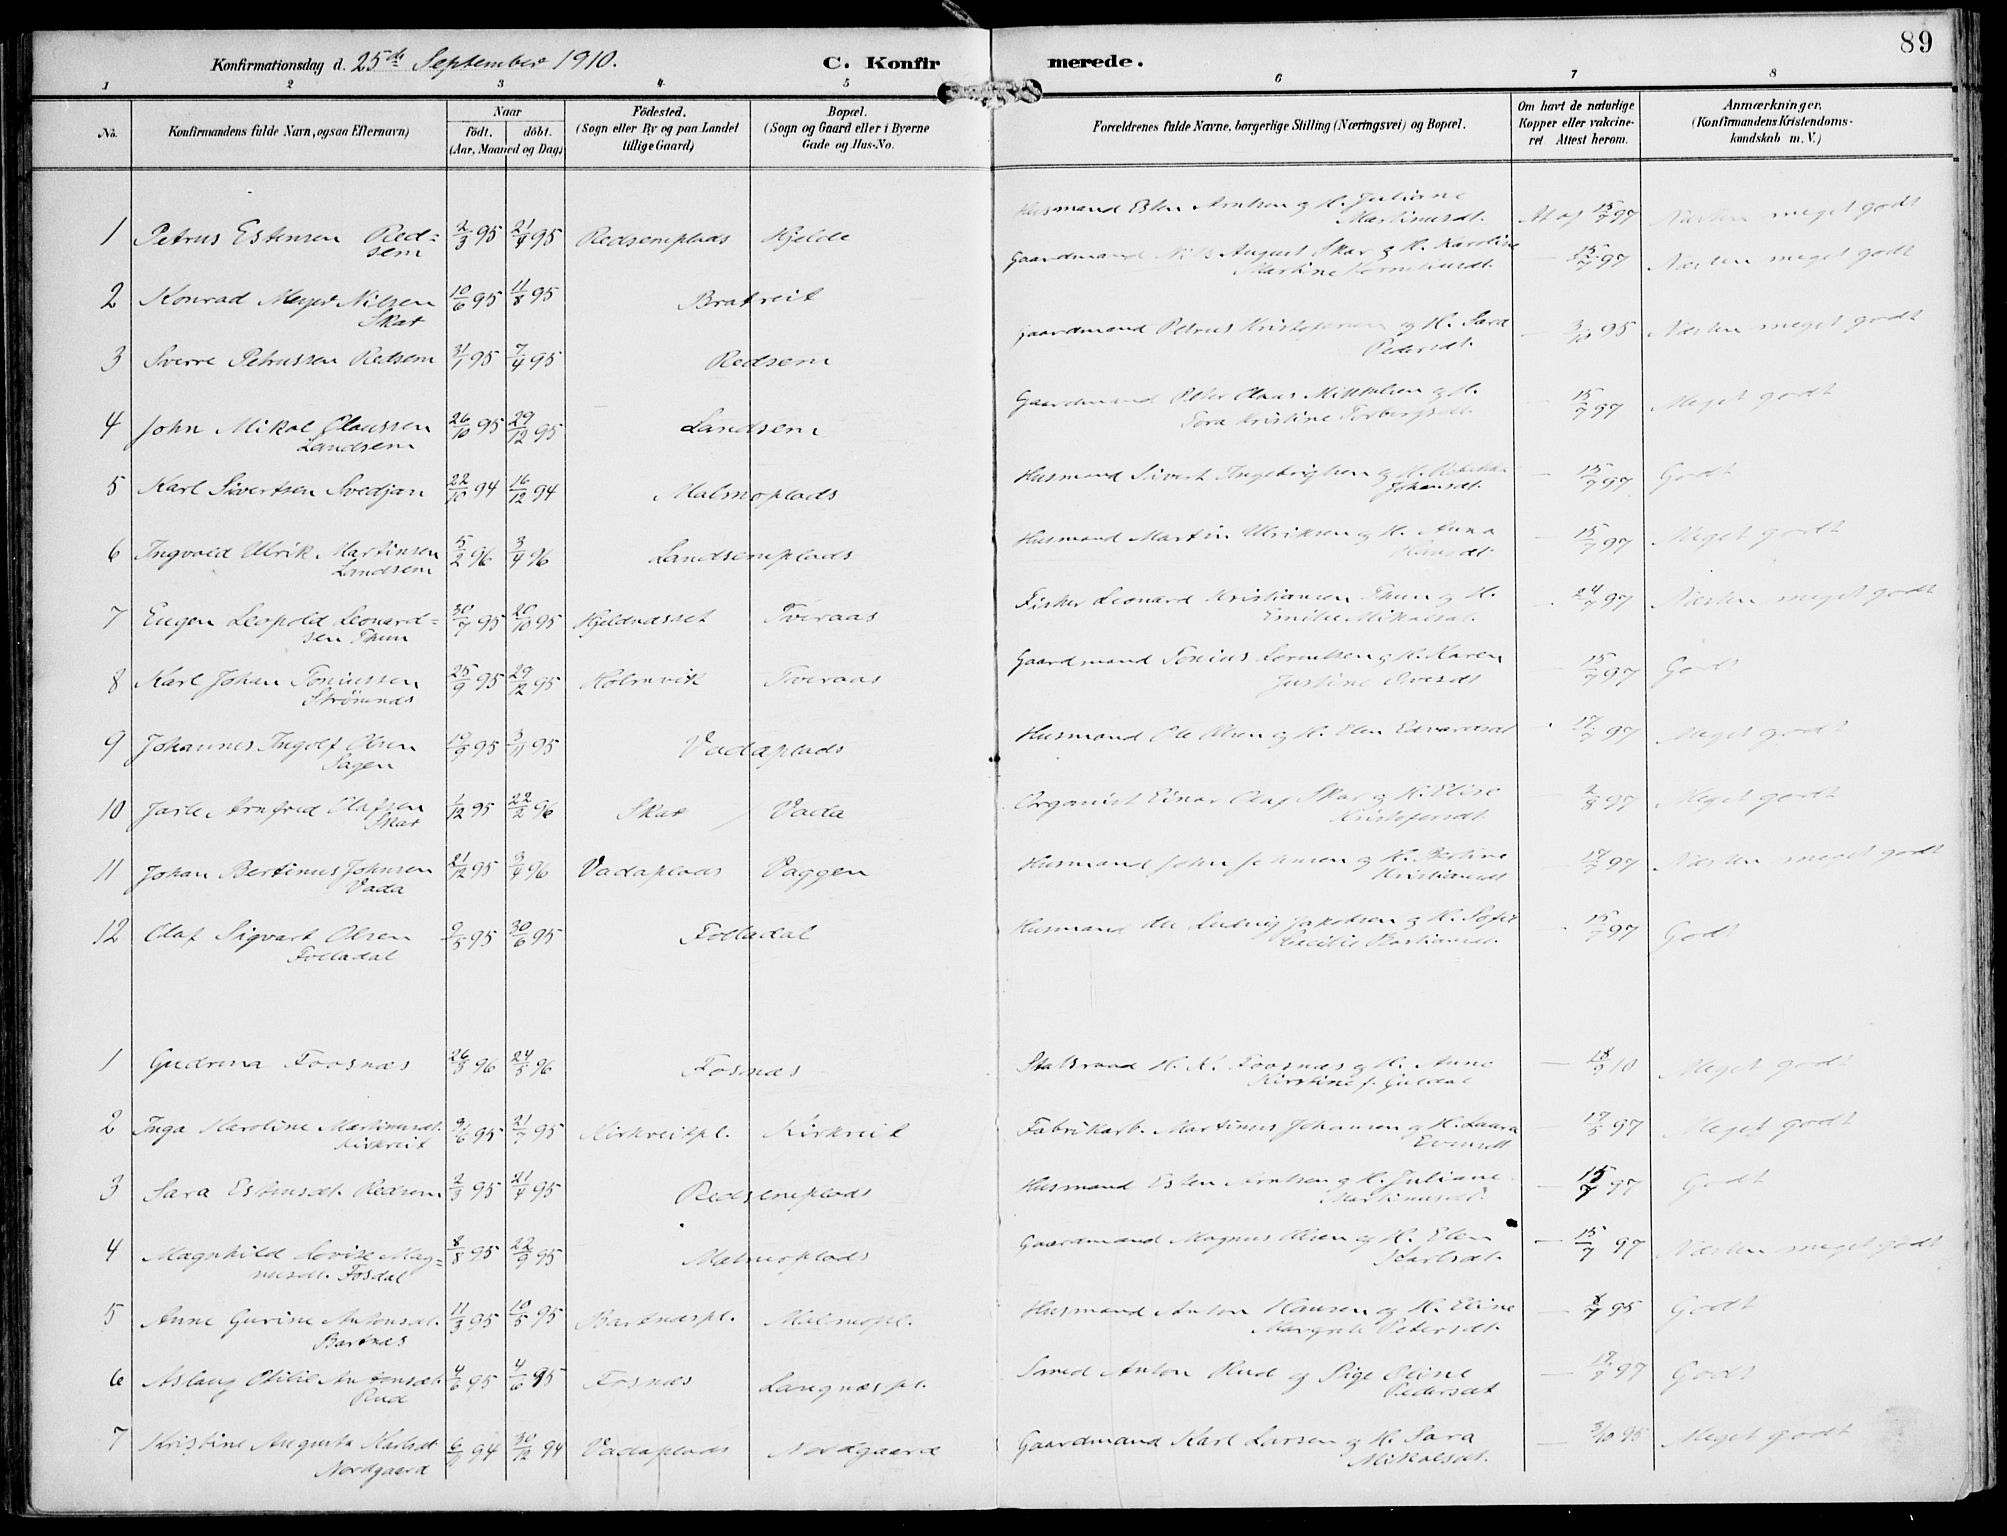 89
Konfirmationsdag d. 25de September 1910.
C. Konfir merede.
1 2 3 4 5 6 7 8
No.
Konfirmandens fulde Navn, ogsaa Efternavn)
Naar
födt. döbt.
(Aar, Maaned og Dag)
Födested.
(Sogn eller By og paa Landet
tillige Gaard)
Bopæl.
(Sogn og Gaard eller i Byerne
Gade og Hus-No.
Forældrenes fulde Navne, borgerlige Stilling (Næringsvei) og Bopæl.
Om havt de naturlige
Kopper eller vakcine-
ret Attest herom.
Anmærkninger.
(Konfirmandens Kristendoms-
kundskab m. V.)
Husmand Esten Arntsen og H. Juliane
Martinusdt. At af 15/7 97 Næsten meget godt
1 Petrus Estensen Red=
sem 2/3 95 21/4 95 Redsemplads Hjelde
Gaardmand Nils August Skar og H. Karoline
Martine 15/7 97 Næsten meget godt
2 Konrad Meyer Nilsen
Skar 10/6 95 11/8 95 Bratreit
Gaardmand Petrus Kristofersen og H. Sara
Pedersdt. — 3/10 95 Næsten meget godt
3 Sverre Petrussen Redsem 31/1 95 7/4 95 Redsem
Gaardmand Peter Claus Mikkelsen og H.
Tora Kristine Torbergsdt. — 15/7 97 Meget godt
4 John Mikal Claussen
Landsem 26/10 95 29/12 95 Landsem
5 Karl Sivertsen Svedjan 22/10 94 16/12 94 Malmoplads
Husmand Sivert Ingebrigtsen og H. Rebekka
Johansdt. — 15/7 97 Godt
6 Ingvald Ulrik Martinsen
Landsem 5/2 96 3/4 96 Landsemplads
Husmand Martin Ulriksen og H. Anna
Hansdt. — 15/7 97 Meget godt
7 Eugen Leopold Leonard=
sen Thun 30/7 95 20/10 95 Hjeldnesset Tveraas
Fisker Leonard Kristiansen Thun og H.
Emilie Mikalsdt. — 24/7 97 Næsten meget godt
8 Karl Johan Toniussen
Strömnæs 25/9 95 29/12 95 Holmvik Tveraas
Gaardmand Tonius Cornelsen og H. Karen
Justine — 15/7 97 Godt
9 Johannes Ingolf Olsen
Hagen 19/9 95 3/11 95 Vadaplads
Husmand Ole Olsen og H. Elen Edvardsdt 17/7 97 Meget godt
10 Jarle Arnfred Olafsen
Skar 1/12 95 22/2 96 Skar / Vada
Organist Einar Olaf Skar og H. Elise
Kristofersdt. — 2/8 97 Meget godt
11 Johan Bertinus Johnsen
Vada 21/12 95 3/4 96 Vadaplads Vaggen
Husmand John Johnsen og H. Bertine
Kristiansdt — 17/7 97 Næsten meget godt
12 Olaf Sigvart Olsen
Folladal 9/5 95 30/6 95 Folladal
Husmand Ole Ludvig Jakobsen og H. Sofie
Cecilie Bastiansdt. 15/7 97 Godt
1 Gudruna Foosnæs 26/3 96 24/5 96 Fosnæs
Statsraad H. K. Foosnæs og H. Anne
Kirstine f. Guldal — 18/9 10 Meget godt
2 Inga Karoline Martinusdt.
Kirkreit 9/6 95 21/7 95 Kirkreitpl. Kirkreit
Fabrikarb. Martinus Johansen og H. Laura
Evensdt — 17/5 97 Meget godt
3 Sara Estensdt. Redsem 2/3 95 21/4 95 Redsemplads
Husmand Esten Arntsen og H. Juliane
Martinusdt. — 15/7 97 Godt
4 Magnhild Lovise Mag=
nusdt. Fosdal 8/8 95 22/9 95 Malmoplads
Gaardmand Magnus Olsen og H. Elen
Karlsdt. — 15/7 97 Næsten meget godt
5 Anne Gurine Antonsdt.
Bartnæs 11/3 95 10/5 95 Bartnæspl. Malmopl.
Husmand Anton Hansen og H. Eline
Margrete Petersdt. — 8/7 95 Godt
6 Aslaug Otilie Antonsdt.
Rud 4/6 95 4/6 95 Fosnæs Langnæspl.
Smed Anton Rud og Pige Oline
Pedersdt — 17/7 97 Godt
7 Kristine Augusta Karlsdt.
Nordgaard 6/9 94 30/12 94 Vadaplads Nordgaard
Gaardmand Karl Larsen og H. Sara
Mikalsdt. — 3/10 95 Meget godt